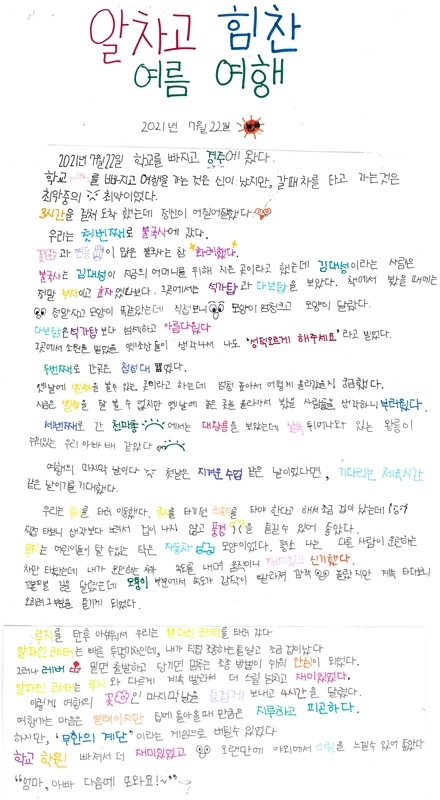 알차고 힘찬
여름 여행
2021년 7월 22일
2021년 7월 22일 학교를 빠지고 경주에 왔다.
학교 를 빠지고 여행을 가는 것은 신이 났지만, 갈 때 차를 타고 가는것은
최악중의 최악이었다.
3시간을 걸쳐 도착 했는데 정신이 어질어질했다
우리는 첫번째로 불국사에 갔다.
이 많은 불국사는 참 화려했다.
불국사는 김대성이 지금의 어머니를 위해 지은 곳이라고 했는데 김대성이라는 사람은
정말 부자이고 효자였나보다. 그곳에서는 석가탑과 다보탑을 보았다. 책에서 봤을 때에는
정말 작고 모양이 똑같았는데 직접 보니 모양이 엄청크고 모양이 달랐다.
다보탑은 석가탑 보다 섬세하고 아름다웠다
그곳에서 소원을 빌었을 옛조상들이 생각나서 나도 "성적오르게 해주세요"라고 빌었다.
두번째로 간곳은 첨성대 였다.
옛날에 별을 볼수 있는 곳이라고 하는데 엄청 높아서 어떻게 올라갔을지 궁금했다.
지금은 별을 잘 볼 수 없지만 옛날에 높은 곳을 올라가서 봤을 사람들을 생각하니 부러웠다.
세번째로 간 천마총 에서는 대왕릉을 보았는데 튀어나와 있는 왕릉이
누워있는 우리 아빠 배 같았다
여행의 마지막 날이다 첫날은 지겨운 수업 같은 날이었다면, 기다리는 체육시간
같은 날이기를 기대했다.
우리는 를 타러 이동했다. 를 타기전 리프트를 타야 한다고 해서 조금 겁이 났는데
직접 타보니 생각보다 느려서 겁이 나지 않고 풍경 을 즐길수 있어 좋았다.
루지는 어린이들이 탈 수있는 작은 자동차 모양이었다. 평소 나는 다른 사람이 운전하는
차만 타봤는데 내가 운전하는 차가 속도를 내며 움직이니 재미있고 신기했다.
길을 달렸는데 모퉁이 번번에서 속도가 갑자기 빨라져 깜짝 놀랐지만 계속 타다보니
오히려 그 번을 즐기게 되었다.
루지를 탄후 아쉬워서 우리는 알파인 코스터를 타러 갔다
알파인 코스터는 빠른 두명까지인데, 내가 직접 조종하는 듯 싶고 조금 겁이났다
그러나 레버 밀면 출발하고 당기면 멈추는 조종 방법이 쉬워 안심이 되었다.
알파인 코스터는 루지와 다르게 계속 빨라서 더 스릴 넘치고 재미있었다.
이렇게 여행의 꽃 인 마지막날을 즐겁게 보내고 4시간을 달렸다.
여행가는 마음은 설레이지만 집에 돌아올때 만큼은 지루하고 피곤하다.
하지만, "무한의 계단"이라는 게임으로 버틸수 있었다
학교 학원! 빠져서 더 재미있었고 오랜만에 야외에서 스릴을 느낄수 있어 좋았다
"엄마, 아빠 다음에 또와요!~"